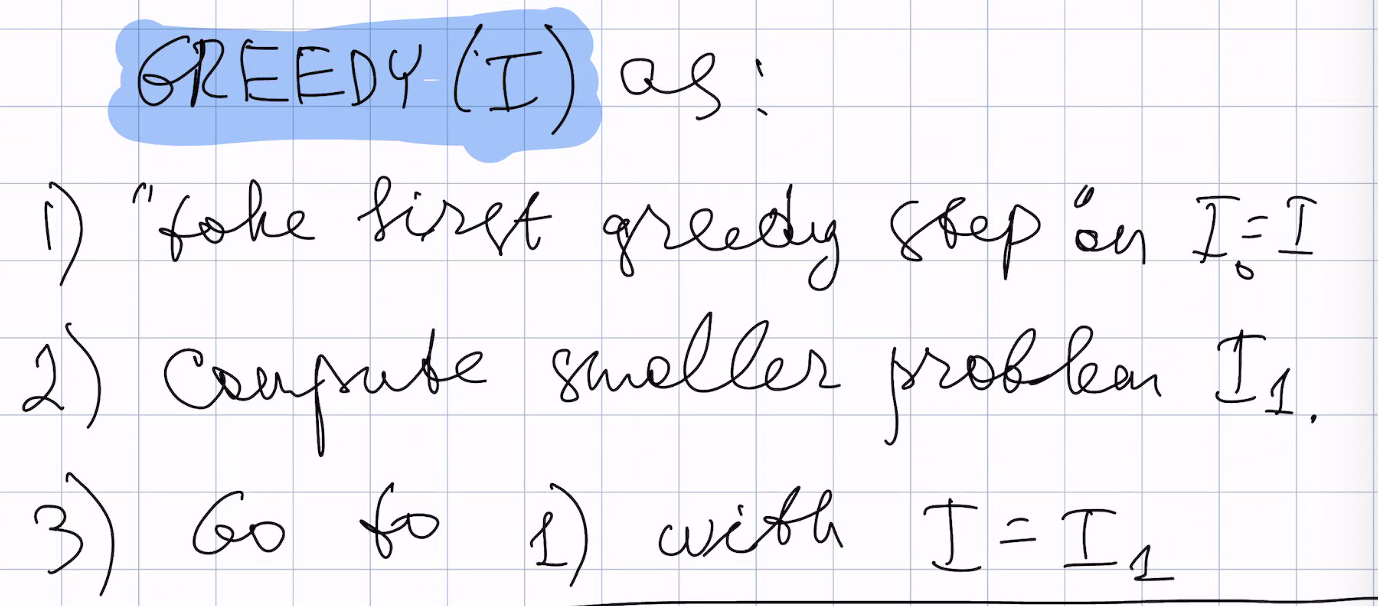 GREEDY(I) as:
1) "take first greedy step" on I₀ = I
2) Compute smaller problem I₁.
3) Go to 1) with I = I₁